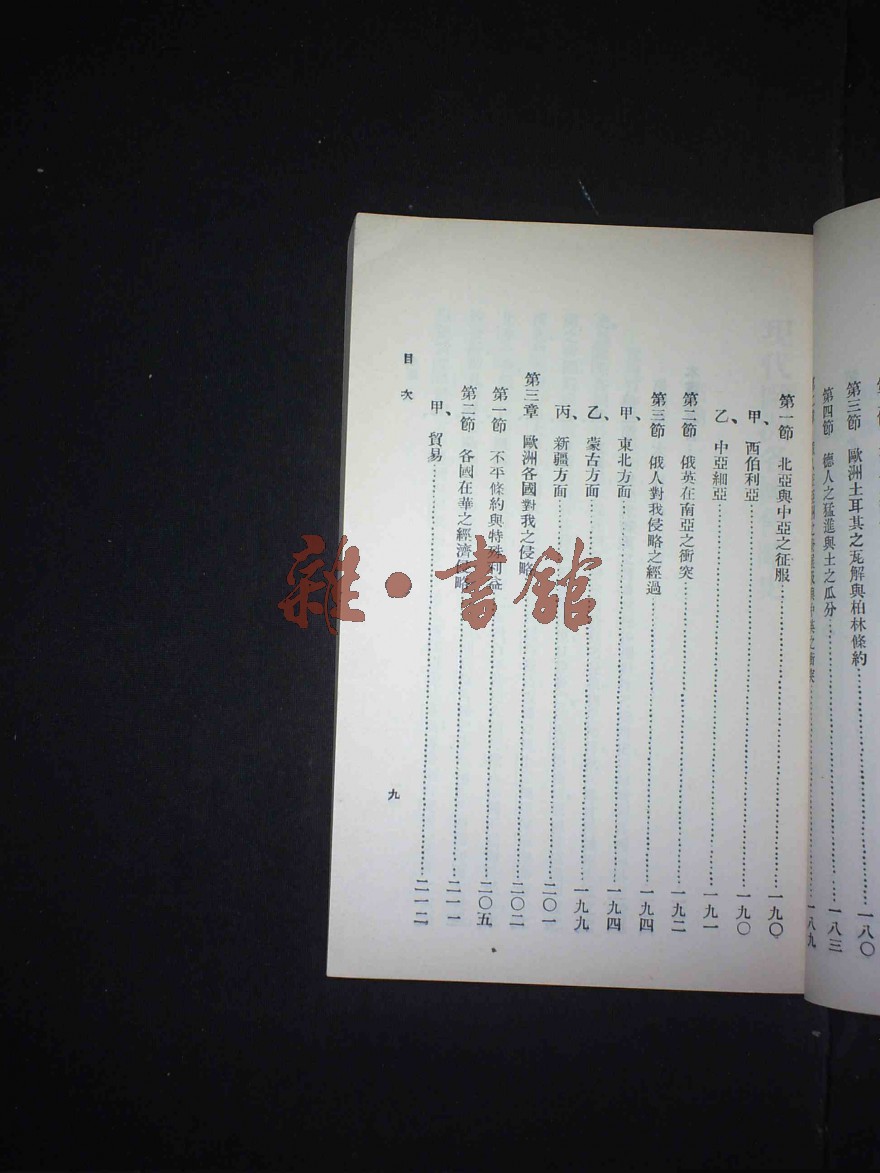 第三節　歐洲土耳其之瓦解與柏林條約……一八〇
第四節　德人之猛進與土之瓜分……一八三
一八九
第一節　北亞與中亞之征服……一九〇
甲、西伯利亞……一九〇
乙、中亞細亞……一九一
第二節　俄英在南亞之衝突……一九二
第三節　俄人對我侵略之經過……一九四
甲、東北方面……一九四
乙、蒙古方面……一九九
丙、新疆方面……二〇一
第三章　歐洲各國對我之侵略……二〇二
第一節　不平條約與特殊利益……二〇五
第二節　各國在華之經濟侵略……二一一
甲、貿易……二一二
目次
九
雜·書館